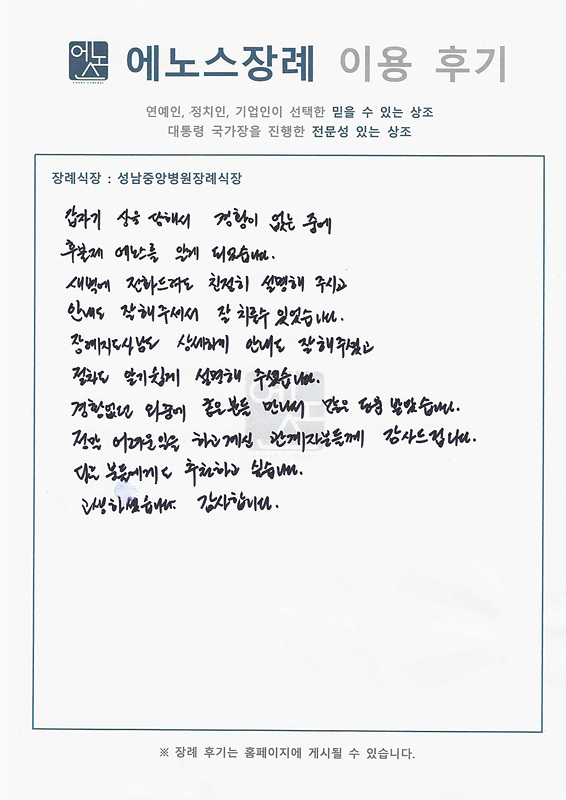 에노스
에노스장례 이용 후기
연예인, 정치인, 기업인이 선택한 믿을 수 있는 상조
대통령 국가장을 진행한 전문성 있는 상조
장례식장 : 성남중앙병원장례식장
갑자기 상을 당해서 경황이 없는 중에
후불제 에노스를 알게 되었습니다.
새벽에 전화드려도 친절히 설명해 주시고
안내도 잘해주셔서 잘 치를수 있었습니다.
장례지도사님도 상세하게 안내도 잘해주셨고
절차도 알기쉽게 설명해 주셨습니다.
경황없던 와중에 좋은분들 만나서 많은 도움 받았습니다.
정말 어려운일을 하고계신 관계자분들께 감사드립니다.
다른 분들에게도 추천하고 싶습니다.
고생하셨습니다. 감사합니다.
※ 장례 후기는 홈페이지에 게시될 수 있습니다.